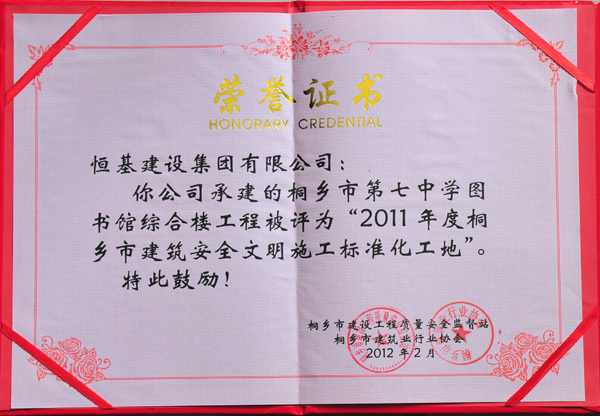 荣誉证书
HONORARY CREDENTIAL
恒基建设集团有限公司：
你公司承建的桐乡市第七中学图
书馆综合楼工程被评为“2011年度桐
乡市建筑安全文明施工标准化工地”。
特此鼓励！
桐乡市建设工程质量安全监督站
桐乡市建筑业行业协会
2012年2月